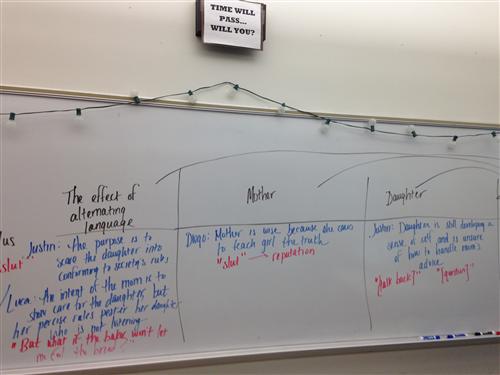 TIME WILL
PASS...
WILL YOU?
The effect of
alternating
language
Justin: the purpose is to
scare the daughter into
conforming to society's rules
Luca: the intent of the mom is to
show care for the daughter, but
her percise rules pester her daughter
who is not listening.
"But what if the baker won't let
me feel the bread?"
Mother
Diego: Mother is wise because she cares
to teach girl the truth
"slut" reputation
Daughter
Justin: Daughter is still developing a
sense of self and is unsure
of how to handle mom's
advice
"[talk back]" "[question]"
slut"